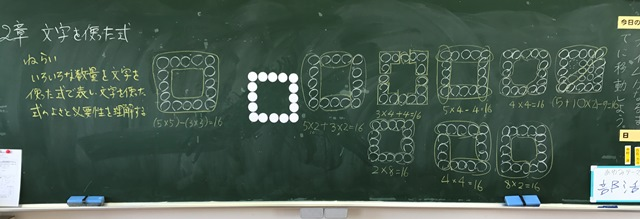 2章 文字を使った式
ねらい
いろいろな数量を文字を
使った式で表し、文字を使った
式のよさと必要性を理解する
(5×5)-(3×3)=16
5×2+3×2=16
3×4+4=16
5×4-4=16
4×4=16
2×8=16
4×4=16
8×2=16
今日の
日